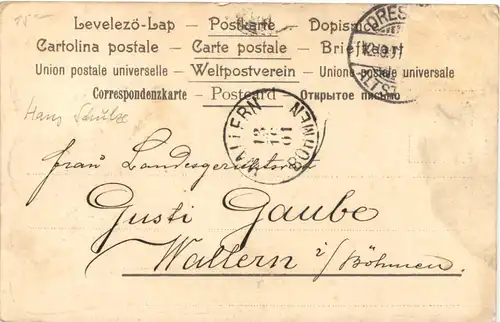 Levelező-Lap — Postkarte — Dopisnice
Cartolina postale — Carte postale — Briefkaart
Union postale universelle — Weltpostverein — Unione postale universale
Correspondenzkarte — Postcard — Открытое письмо
Hans Schulze
WALLERN
BÖHMEN
13
01
Frau Landesgerichtsrat
Gusti Gaube
Wallern i/Böhmen.